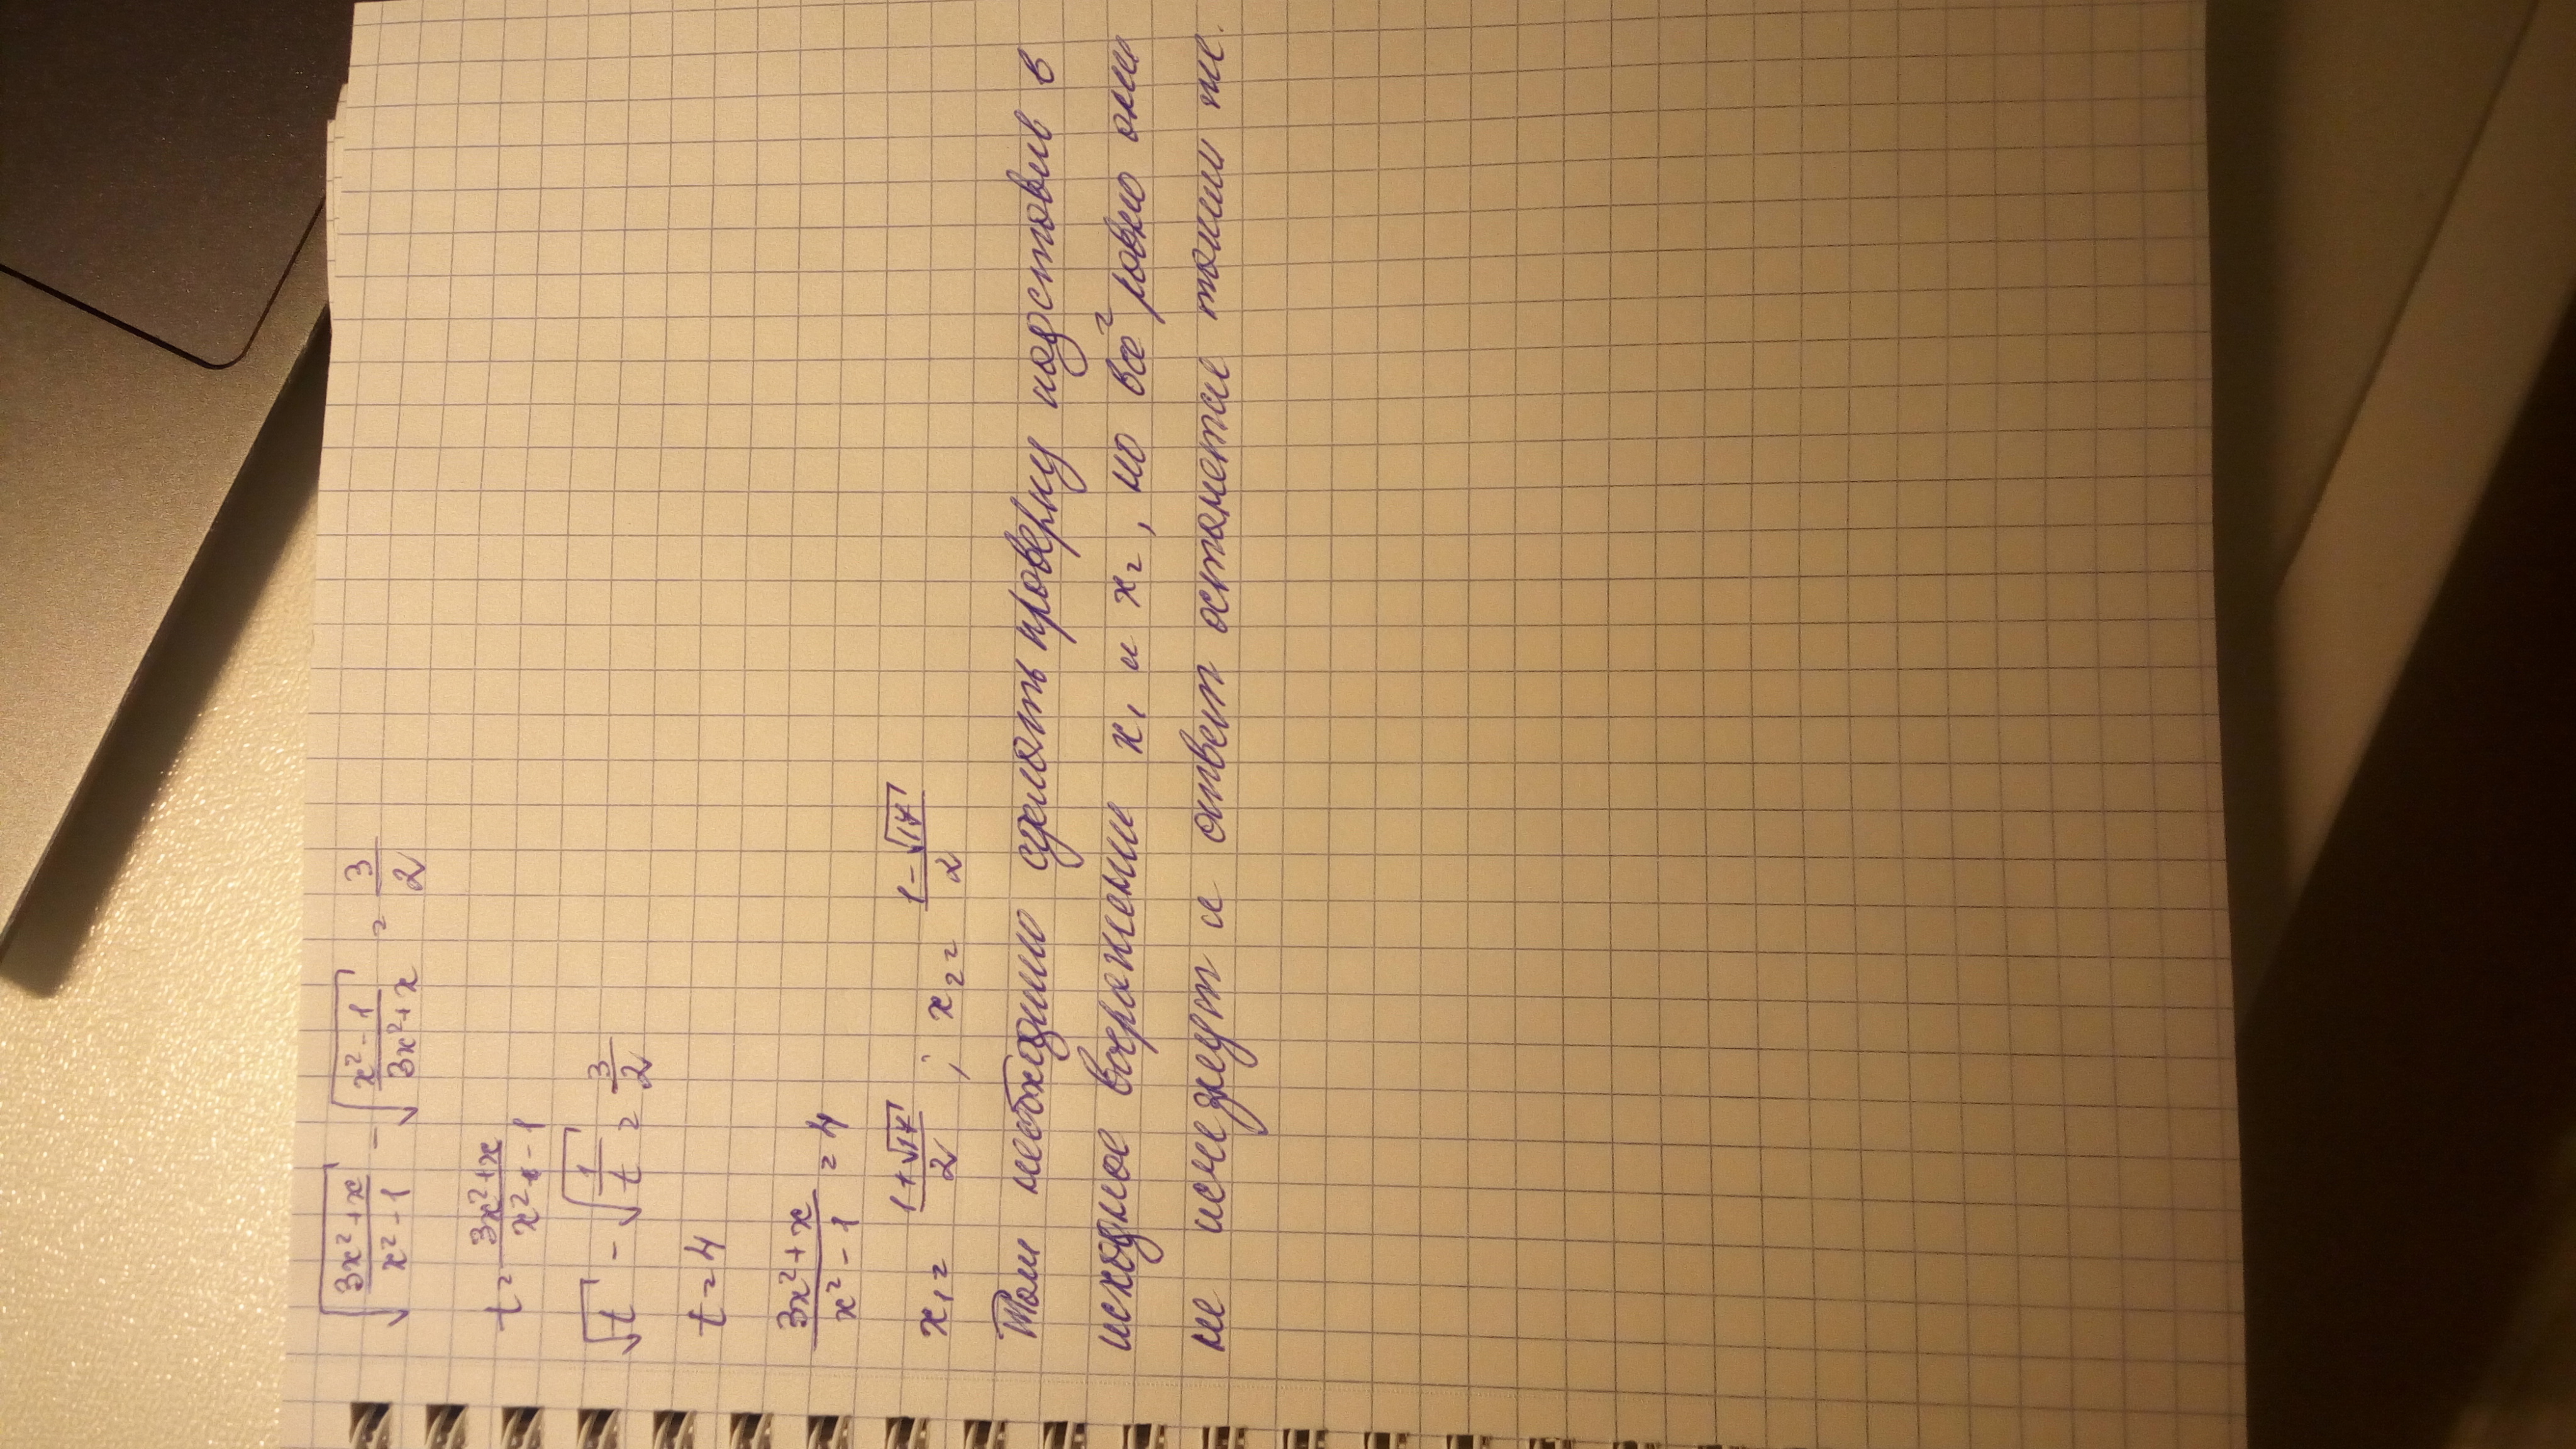 √((3x²+x)/(x²-1)) - √((x²-1)/(3x²+x)) = 3/2
t = (3x²+x)/(x²-1)
√t - √(1/t) = 3/2
t = 4
(3x²+x)/(x²-1) = 4
x₁ = (1+√17)/2 ; x₂ = (1-√17)/2
Там необходимо сделать проверку подставив в
исходное выражение x₁ и x₂, но всё равно они
не исчезнут и ответ останется таким же.